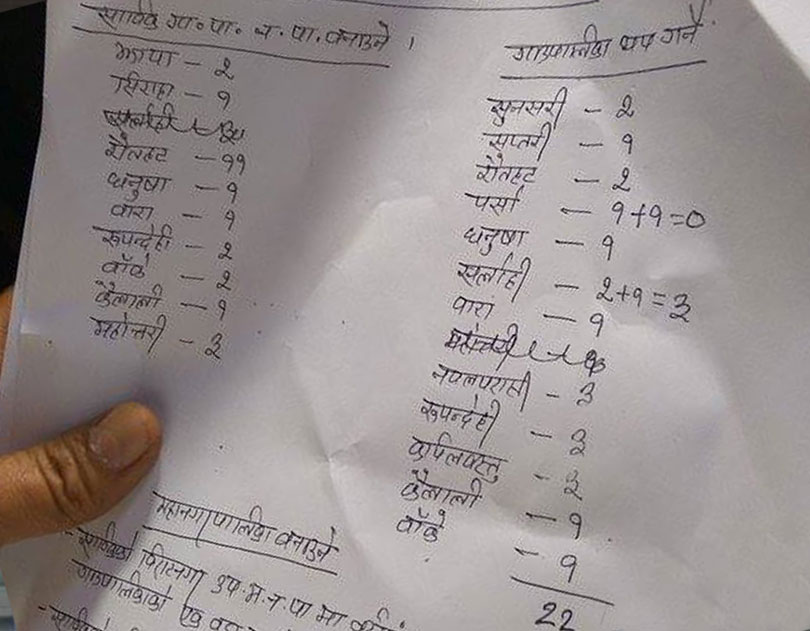 साविक गा॰ पा॰ न. पा. बनाउने ।
झापा - २
सिराहा - १
रौतहट - ११
धनुषा - १
वारा - १
रूपन्देही - २
बाँके - २
कैलाली - १
महोत्तरी - ३
गाउपालिका थप गर्ने
सुनसरी - २
सप्तरी - १
रौतहट - २
पर्सा - १+१=०
धनुषा - १
सर्लाही - २+१=३
वारा - १
नवलपरासी - ३
रूपन्देही - ३
कपिलवस्तु - ३
कैलाली - १
बाँके - १
22
महानगरपालिका बनाउने
- साविकको विराटनगर उप.म.न.पा मा
गाउपालिकाको एक वडा
- साविकको